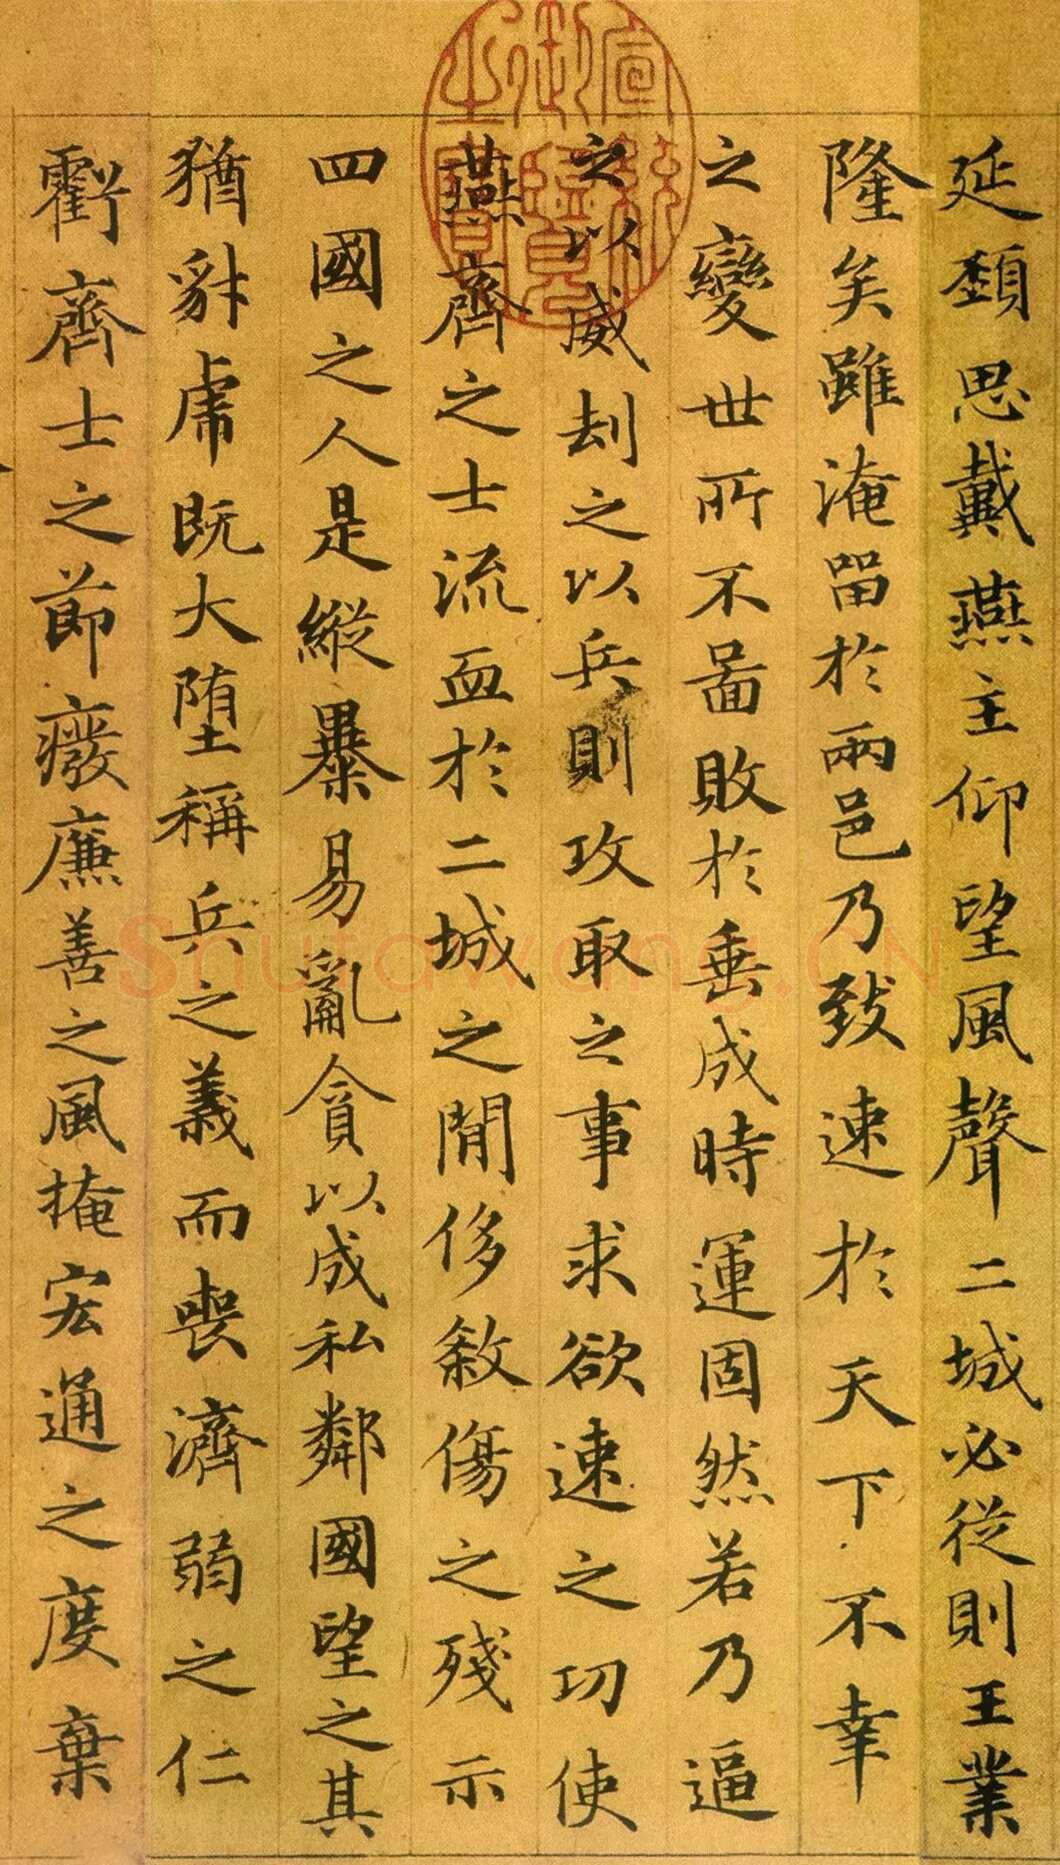 延頸思戴燕主仰望風聲二城必從則王業
隆矣雖淹留於兩邑乃致速於天下不幸
之變世所不啚敗於垂成時運固然若乃逼
之以威刦之以兵則攻取之事求欲速之功使
燕齊之士流血於二城之閒侈殺傷之殘示
四國之人是縱暴易亂貪以成私鄰國望之其
猶豺虎既大墮稱兵之義而喪濟弱之仁
虧齊士之節廢廉善之風掩宏通之度棄
宣統御覽之寶
Shufawang.CN